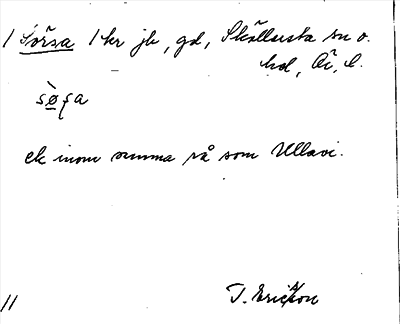 1 Sörsa 1 kr jb, gd, Sköllersta sn o.
hd, Ör, l.
sø̀ʂa
ek inom samma rå som Ullavi.
T. Ericsson
11